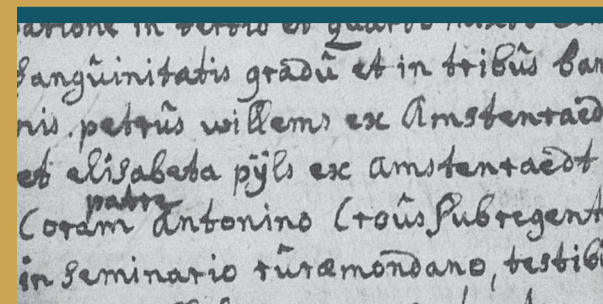 in tertio et quarto
sangûinitatis gradû et in tribûs ban
nis petrûs willems ex Amstenraed
et elisabeta pÿls ex amstenraedt
patre
Coram Antonino Croûs subregent
in seminario rûræmondano, testib